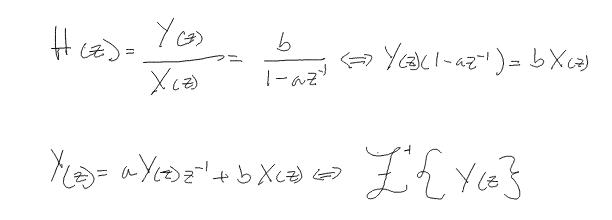 H(z) = Y(z)/X(z) = b/(1-az⁻¹) ⇔ Y(z)(1-az⁻¹) = bX(z)
Y(z) = aY(z)z⁻¹ + bX(z) ⇔ Z⁻¹{Y(z}